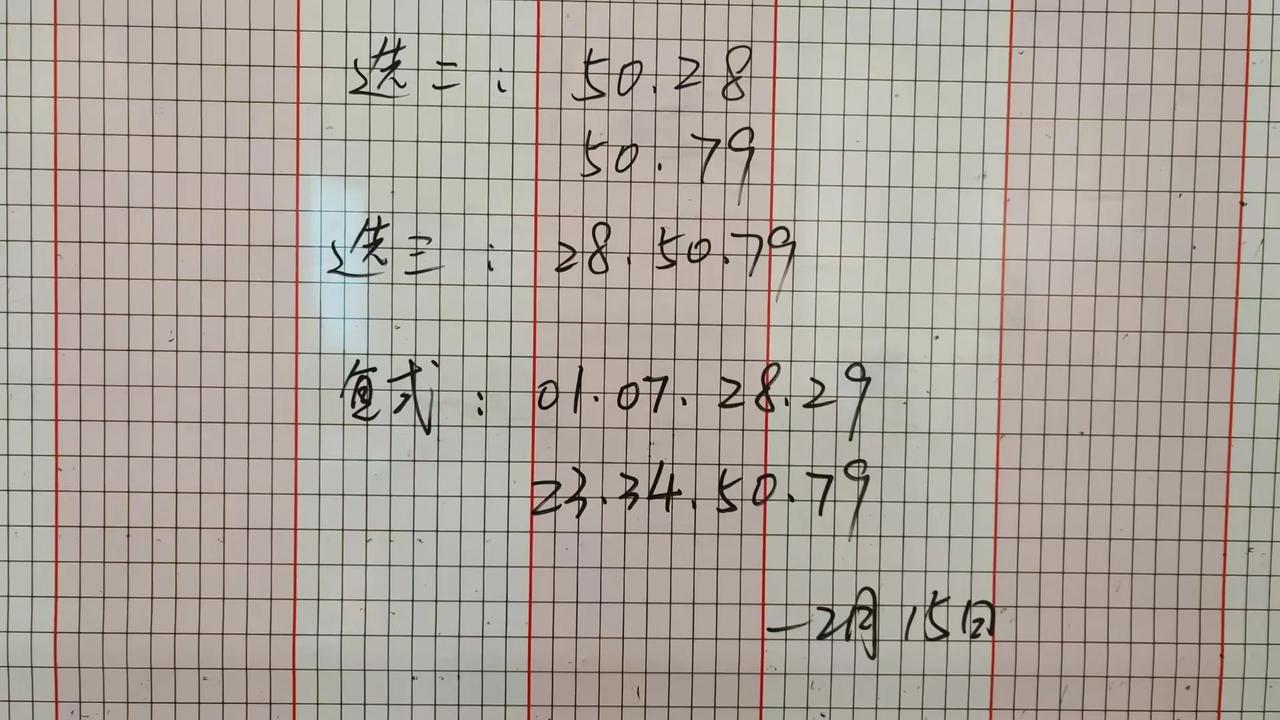 选二：50.28
50.79
选三：28.50.79
复式：01.07.28.29
23.34.50.79
—2月15日